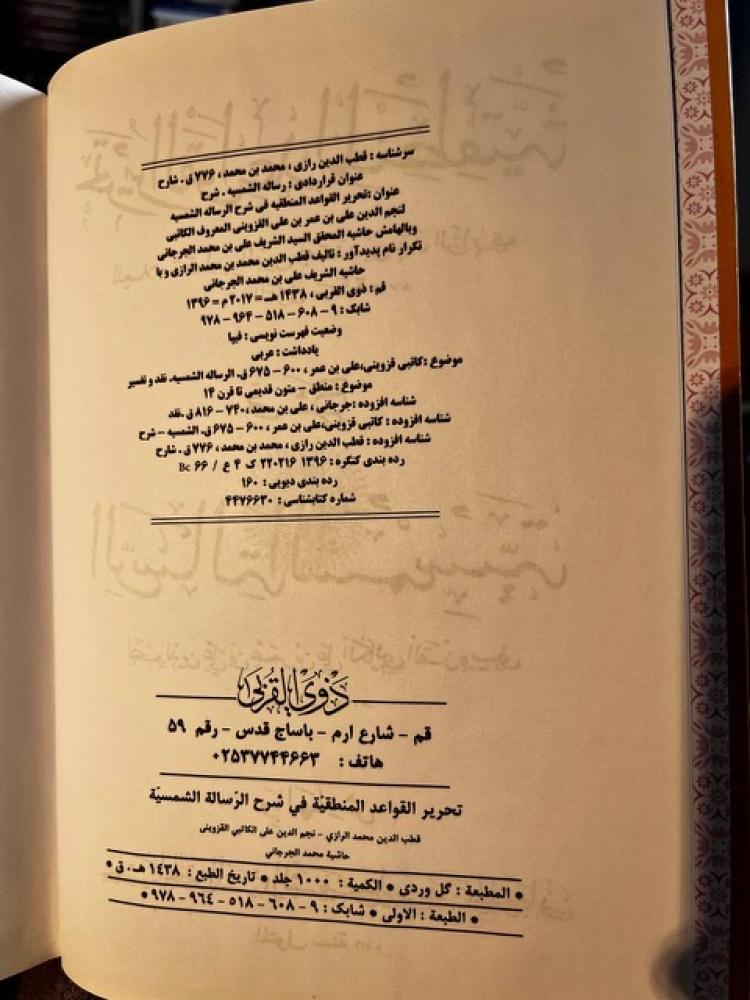 سرشناسه : قطب الدین رازی ، محمد بن محمد ، ۷۷۶ ق . شارح
عنوان قراردادی : رساله الشمسیه . شرح
عنوان :تحریر القواعد المنطقیه فی شرح الرساله الشمسیه
لنجم الدین علی بن عمر بن علی القزوینی المعروف الکاتبی
وبالهامش حاشیه المحقق السید الشریف علی بن محمد الجرجانی
تکرار نام پدیدآور : تالیف قطب الدین محمد بن محمد الرازی و با
حاشیه الشریف علی بن محمد الجرجانی
قم : ذوی القربی ، ۱۴۳۸ هـ = ۲۰۱۷ م = ۱۳۹۶
شابک : ۹ – ۶۰۸ – ۵۱۸ – ۹۶۴ – ۹۷۸
وضعیت فهرست نویسی : فیپا
یادداشت : عربی
موضوع :کاتبی قزوینی،علی بن عمر ، ۶۰۰ – ۶۷۵ ق. الرساله الشمسیه. نقد و تفسیر
موضوع : منطق – متون قدیمی تا قرن ۱۴
شناسه افزوده :جرجانی ، علی بن محمد،۷۴۰ – ۸۱۶ ق .نقد
شناسه افزوده : کاتبی قزوینی،علی بن عمر ، ۶۰۰ – ۶۷۵ ق. الشمسیه – شرح
شناسه افزوده : قطب الدین رازی ، محمد بن محمد ، ۷۷۶ ق . شارح
رده بندی کنگره : ۱۳۹۶ ۲۲۰۲۱۶ ک ۴ ع / ۶۶ Bc
رده بندی دیویی : ۱۶۰
شماره کتابشناسی : ۴۴۷۶۶۳۰
ذوی القربی
قم – شارع ارم – باساج قدس – رقم ۵۹
هاتف : ۰۲۵۳۷۷۴۴۶۶۳
تحریر القواعد المنطقیّة في شرح الرّسالة الشمسیّة
قطب الدین محمد الرازي – نجم الدین علی الکاتبي القزویني
حاشیة محمد الجرجاني
• المطبعة : گل وردی • الکمیة : ۱۰۰۰ جلد • تاریخ الطبع : ۱۴۳۸ هـ . ق •
• الطبعة : الاولی • شابک : ۹ – ۶۰۸ – ۵۱۸ – ۹۶۴ – ۹۷۸ •